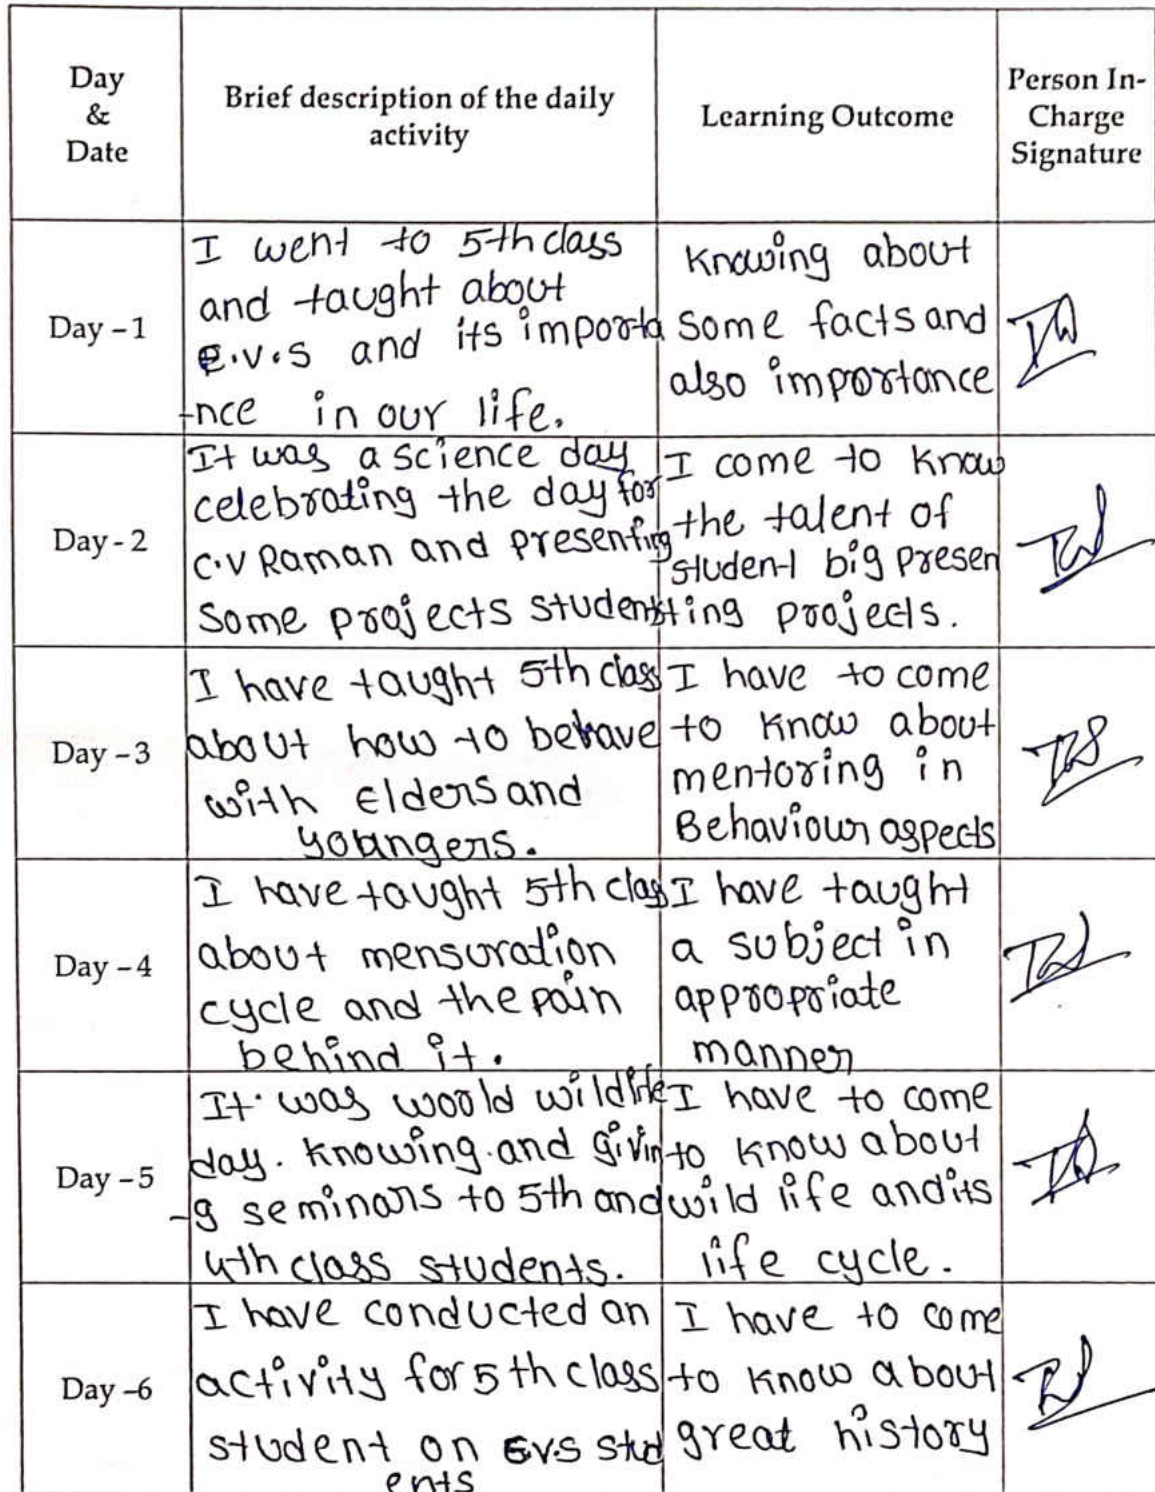 Day
&
Date
Brief description of the daily
activity
Learning Outcome
Person In-
Charge
Signature
Day – 1
I went to 5th class
and taught about
e.v.s and its importa
-nce in our life.
Knowing about
some facts and
also importance
Day - 2
It was a science day
celebrating the day for
C.V Raman and presenting
some projects students
I come to know
the talent of
student big presen
ting projects.
Day – 3
I have taught 5th class
about how to behave
with Elders and
youngers.
I have to come
to know about
mentoring in
Behaviour aspects
Day – 4
I have taught 5th class
about mensuration
cycle and the pain
behind it.
I have taught
a subject in
appropriate
manner
Day – 5
It was woold wildlife
day. Knowing and givin
-g seminars to 5th and
4th class students.
I have to come
to know about
wild life and its
life cycle.
Day –6
I have conducted an
activity for 5th class
student on EVS stud
ents
I have to come
to know about
great history